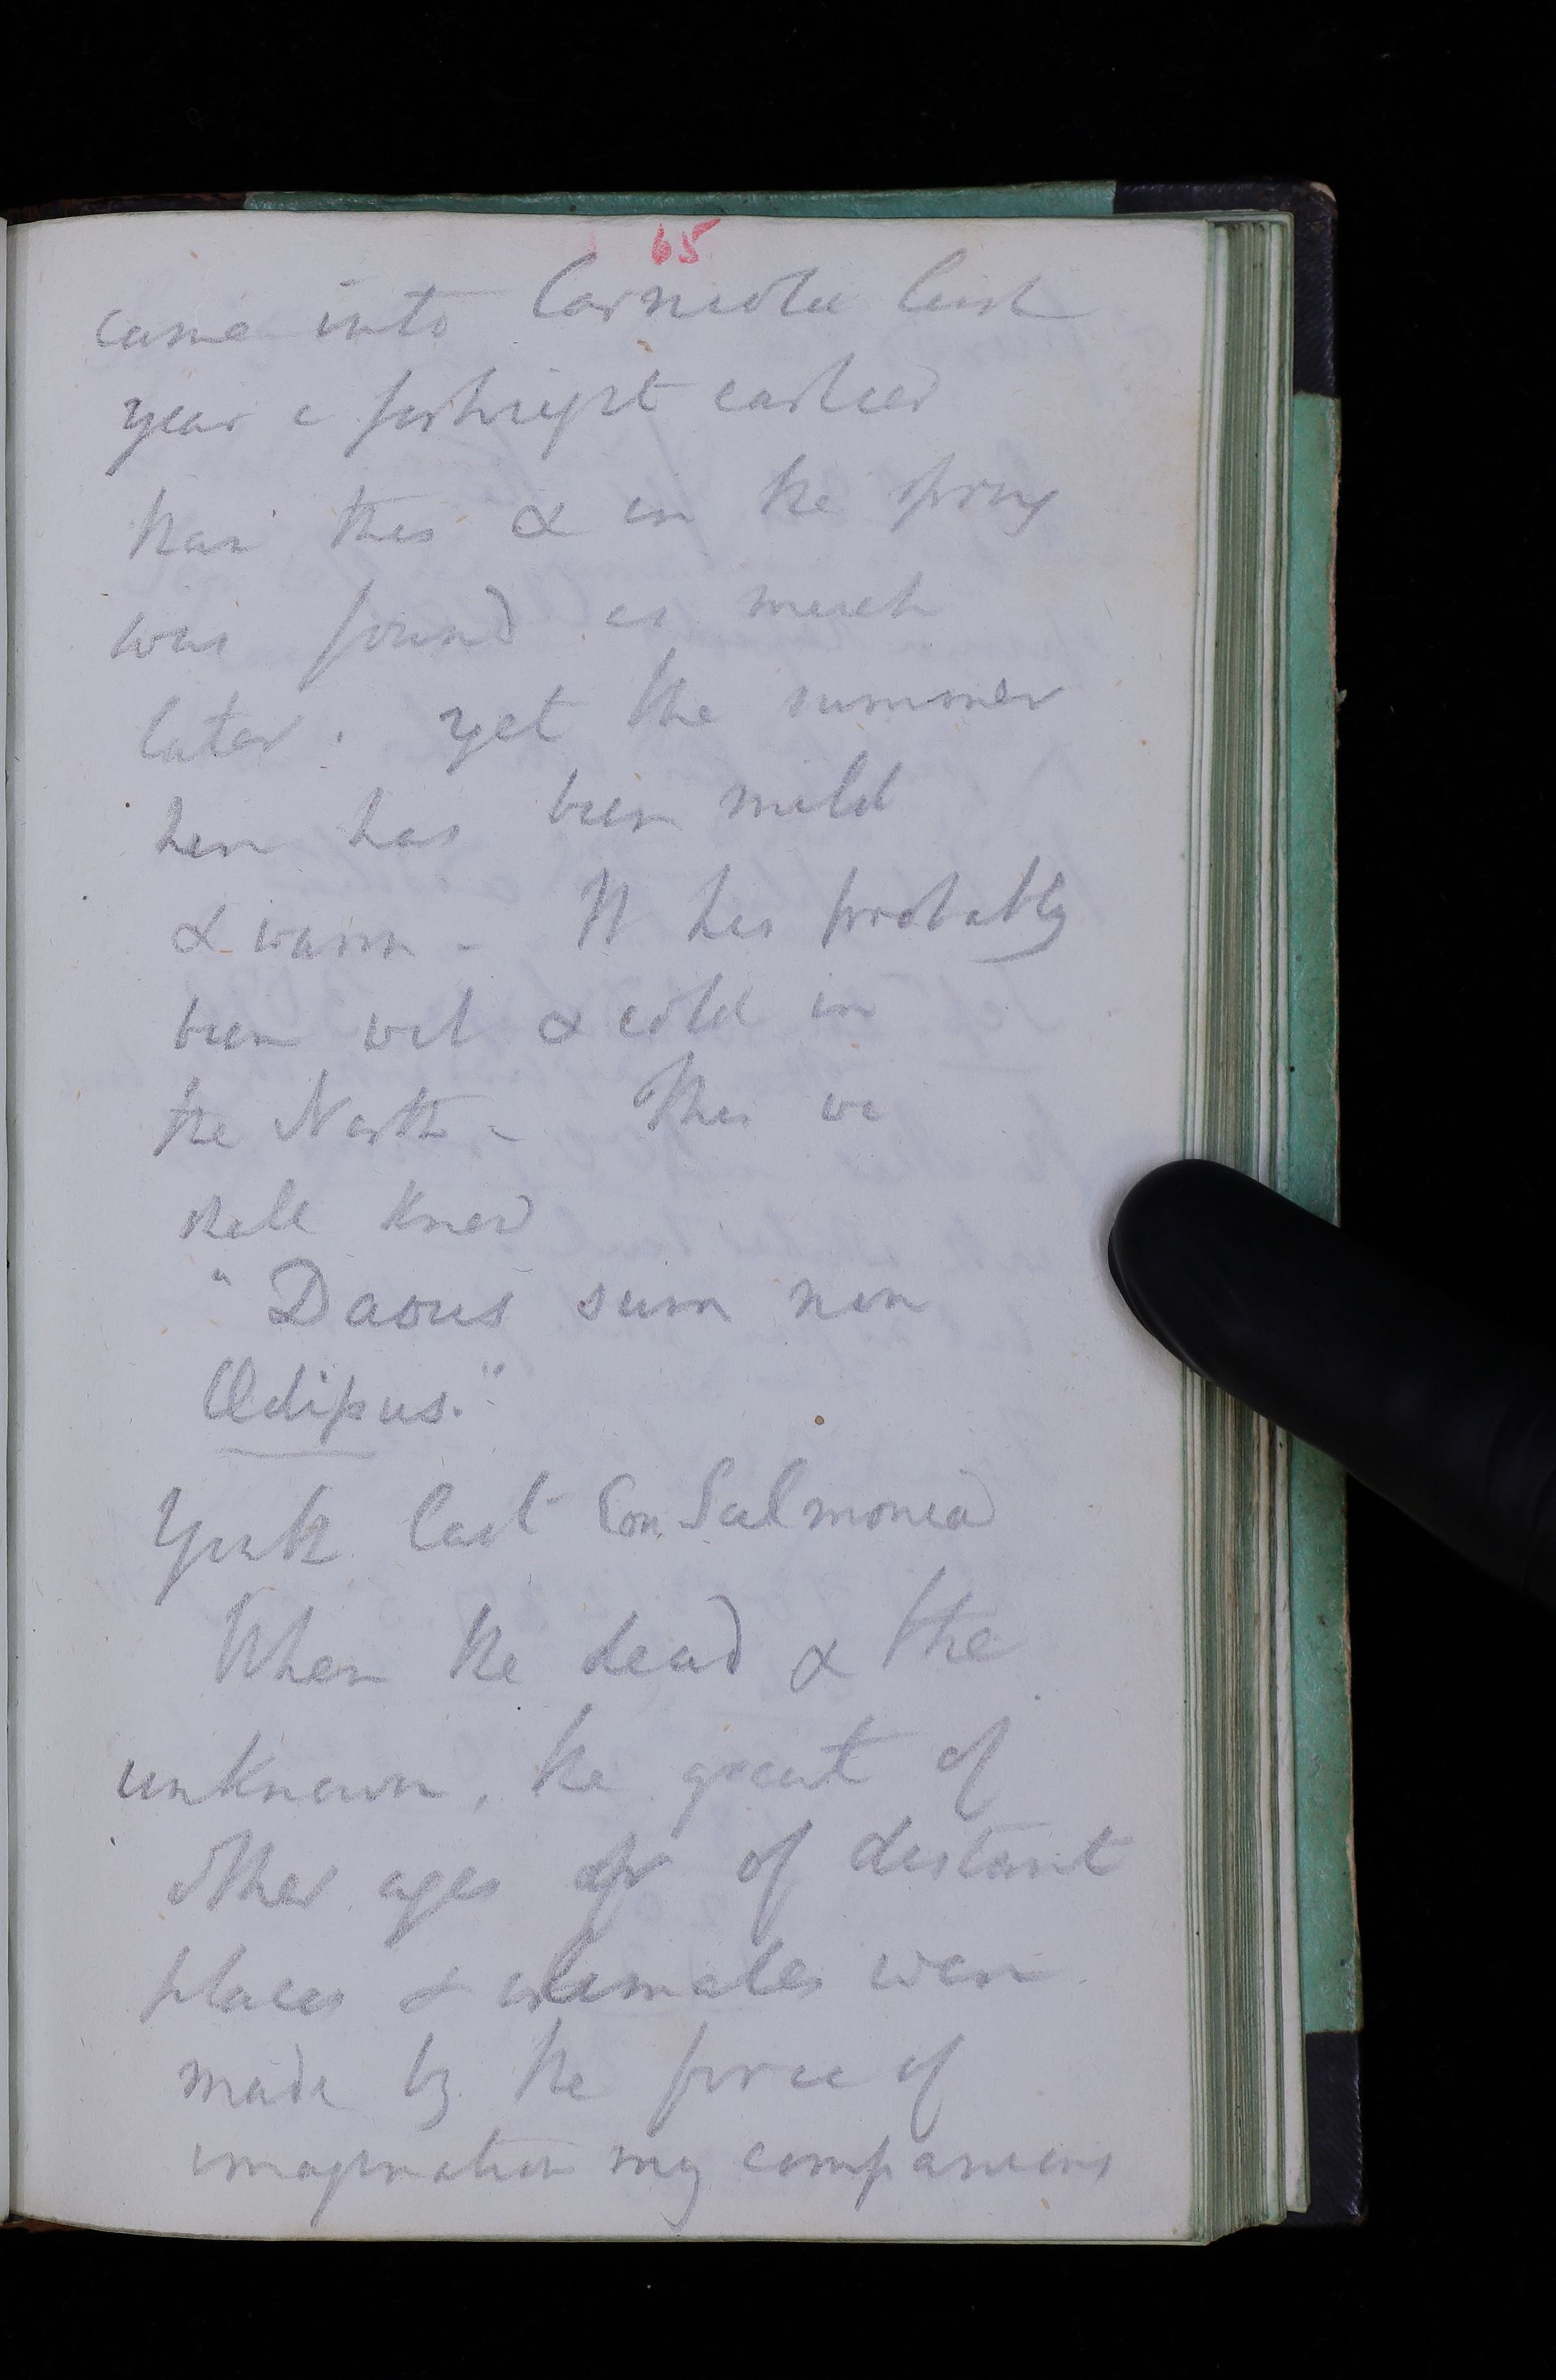 65
came into Carniola last
year a fortnight earlier
than this & in the spring
was found as much
later. yet the summer
here has been mild
& warm - It has probably
been wet & cold in
the North - This we
shall know
"Daous sum non
Œdipus."
Youth last Con Salmonia
When the dead & the
unknown, the great of
other ages or of distant
places & climates were
made by the force of
imagination my companions